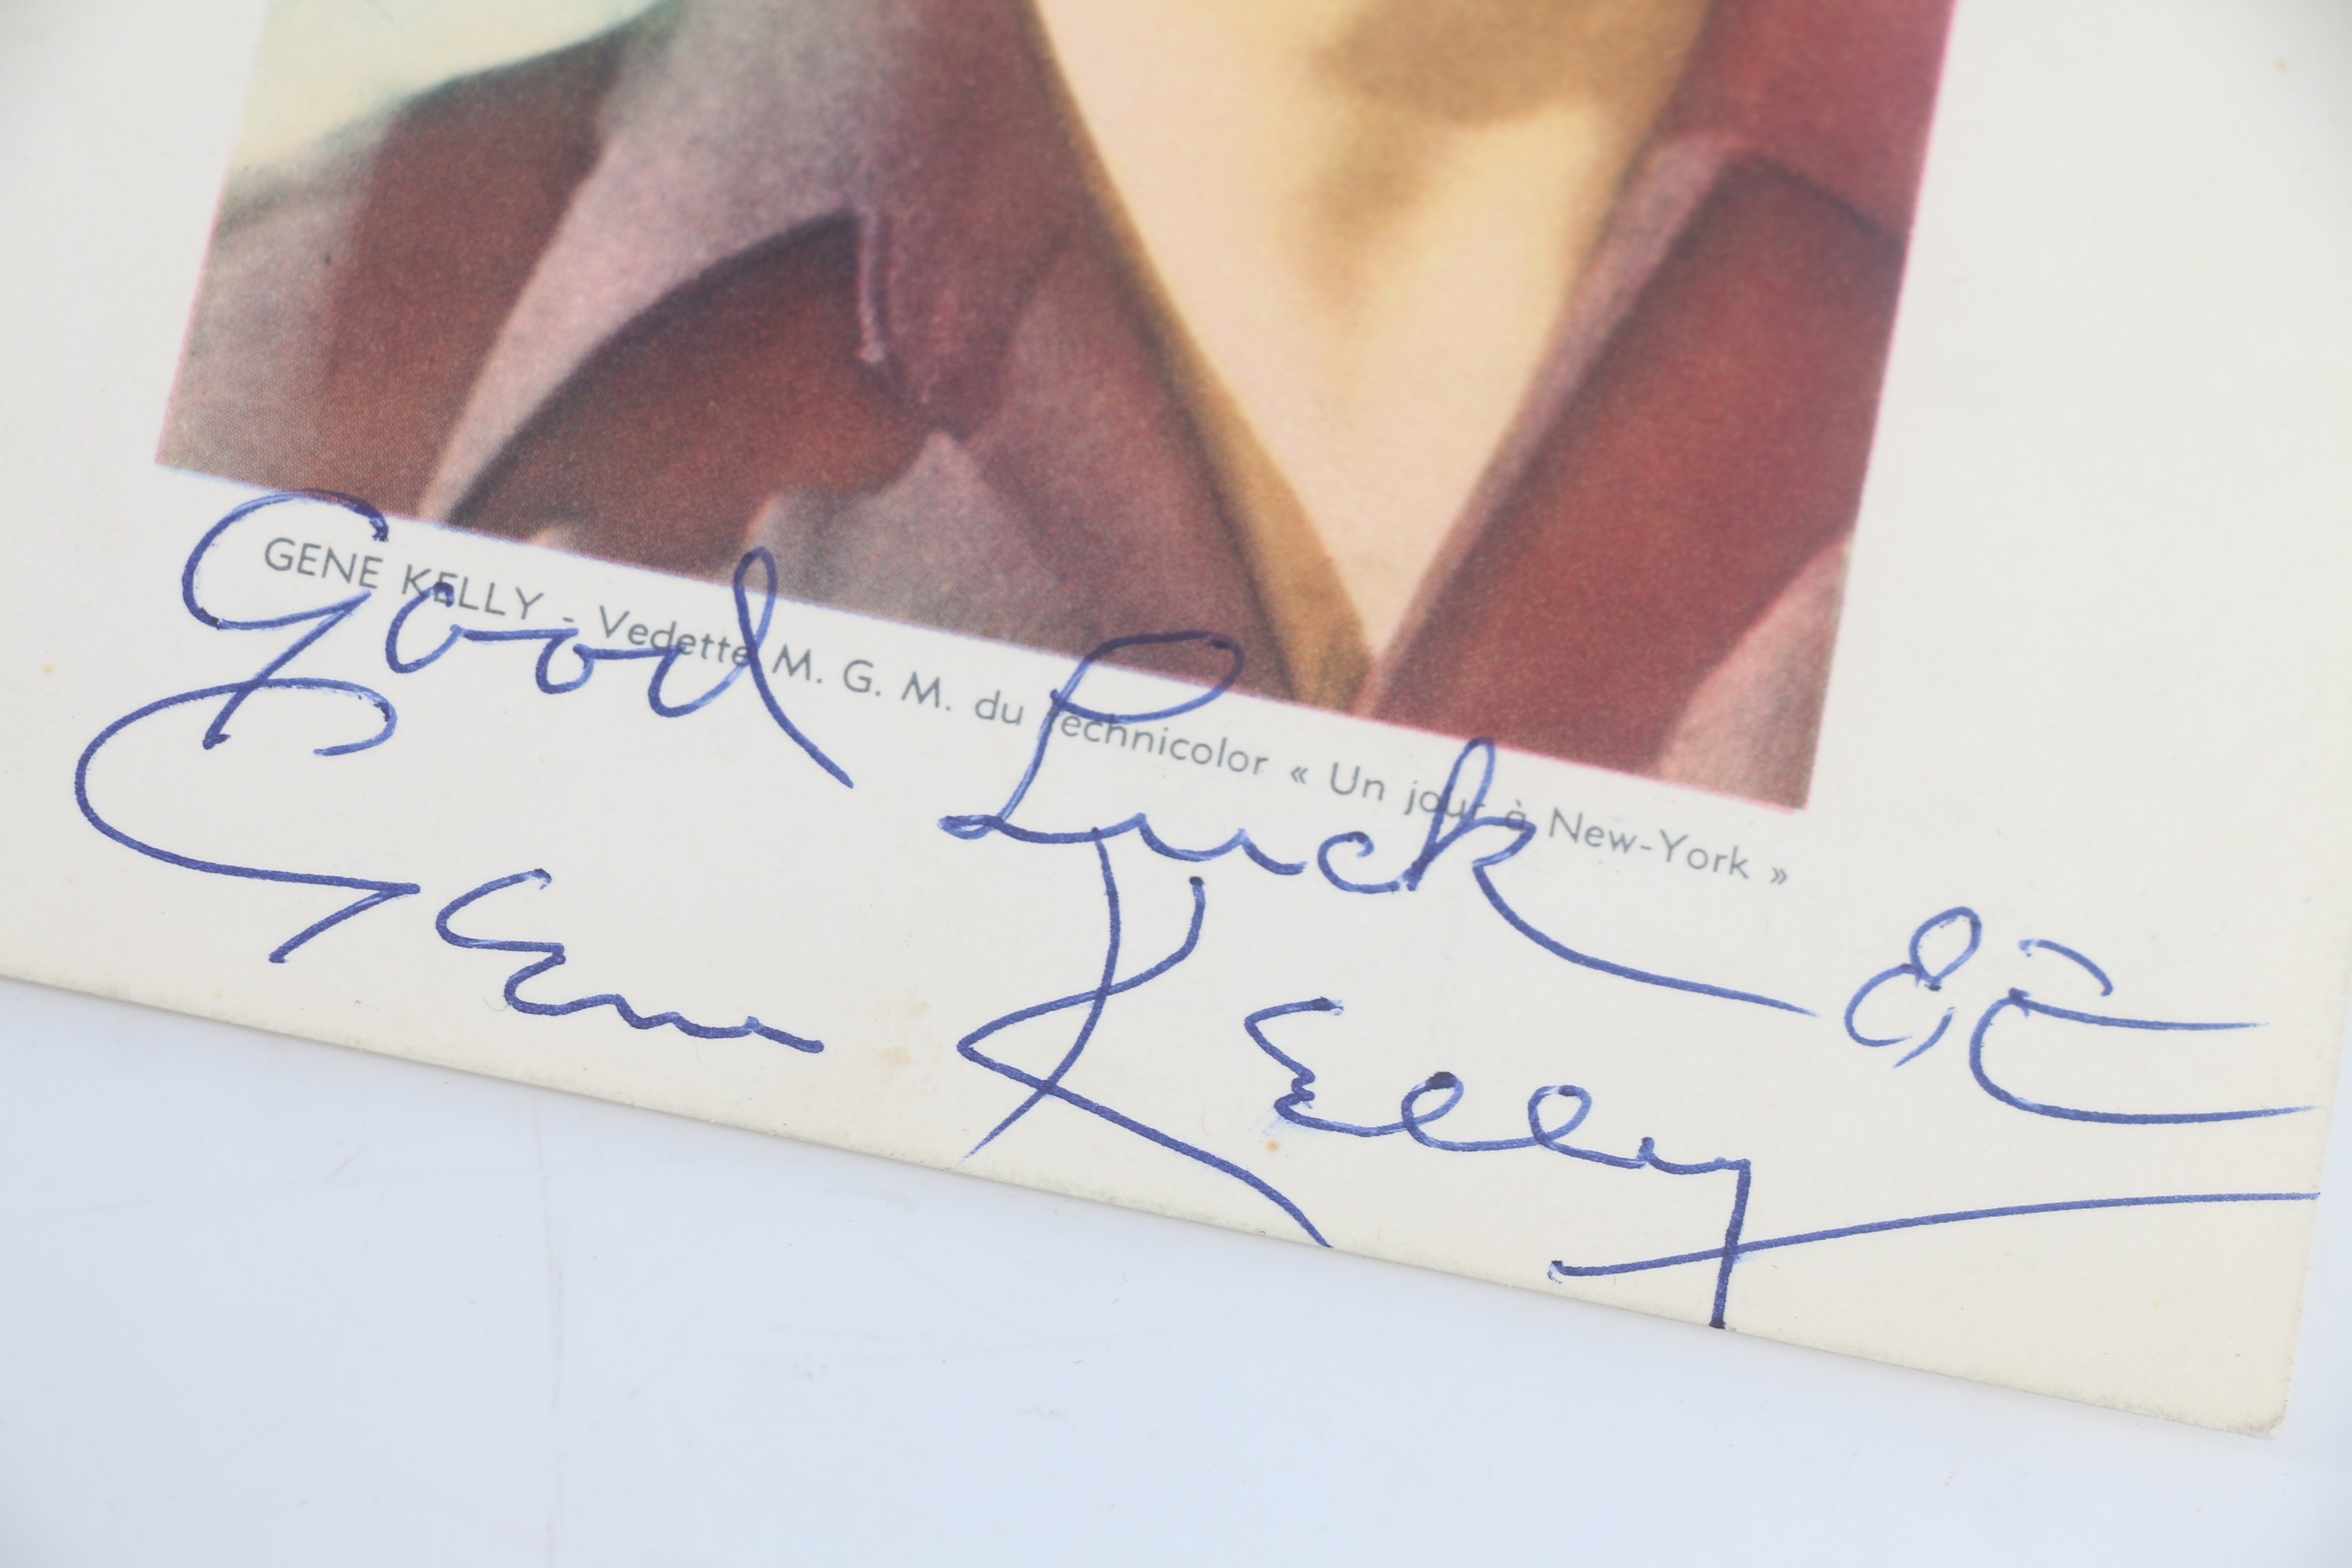 GENE KELLY - Vedette M. G. M. du Technicolor « Un jour à New-York »
Good Luck
Gene Kelly